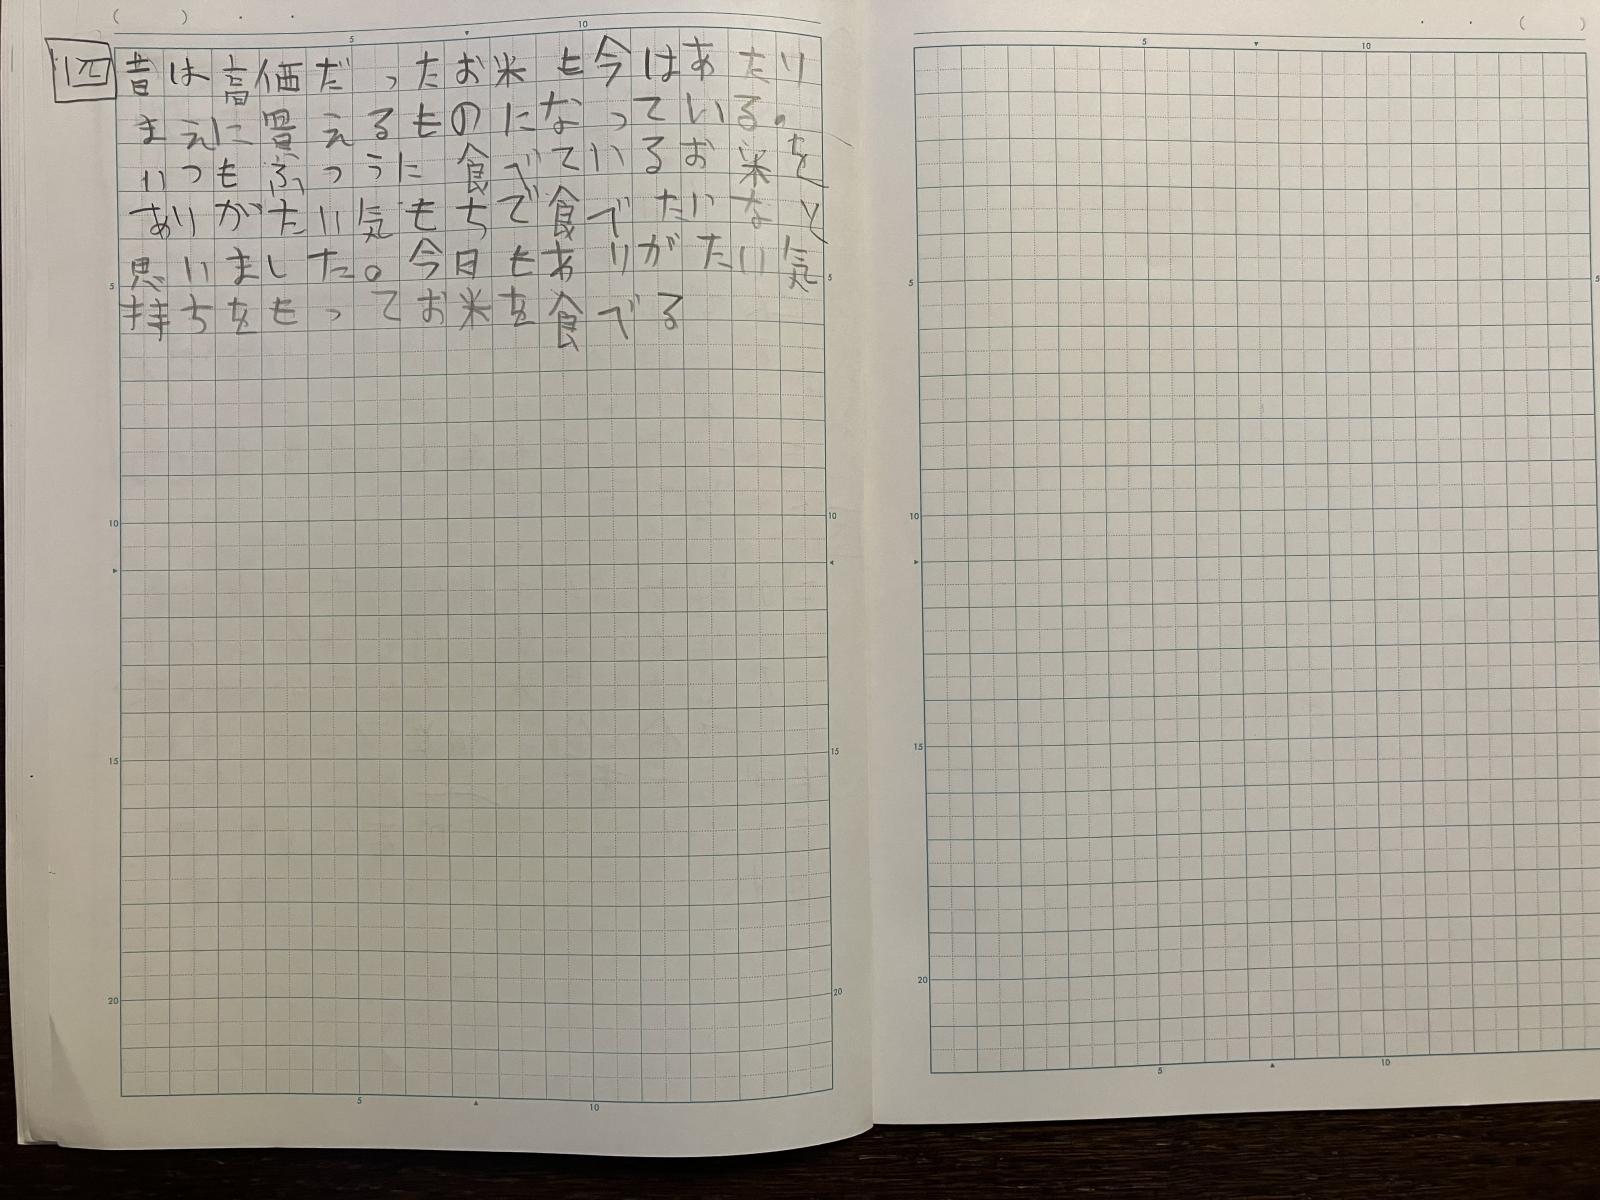 5 10
昔は高価だったお米も今はあたり
まえに買えるものになっている。
いつもふつうに食べているお米を
ありがたい気もちで食べたいなと
思いました。今日もありがたい気
5 5
持ちをもってお米を食べる
10 10
15 15
20 20
5 10
5 10
5 5
10
15
20
5 10